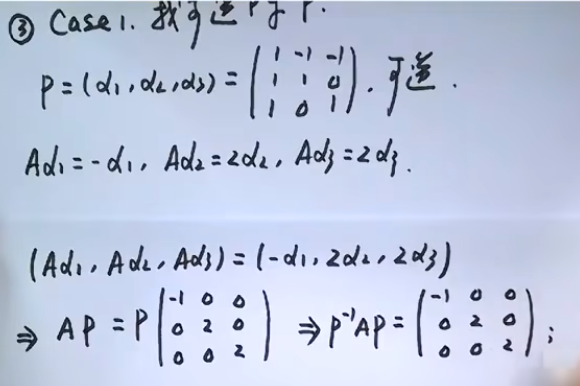 ③ Case 1. 找可逆阵P.
P=(α₁,α₂,α₃)=(1 -1 -1; 1 1 0; 1 0 1), 可逆.
Aα₁=-α₁, Aα₂=2α₂, Aα₃=2α₃.
(Aα₁, Aα₂, Aα₃)=(-α₁, 2α₂, 2α₃)
⇒ AP=P(-1 0 0; 0 2 0; 0 0 2) ⇒ P⁻¹AP=(-1 0 0; 0 2 0; 0 0 2);